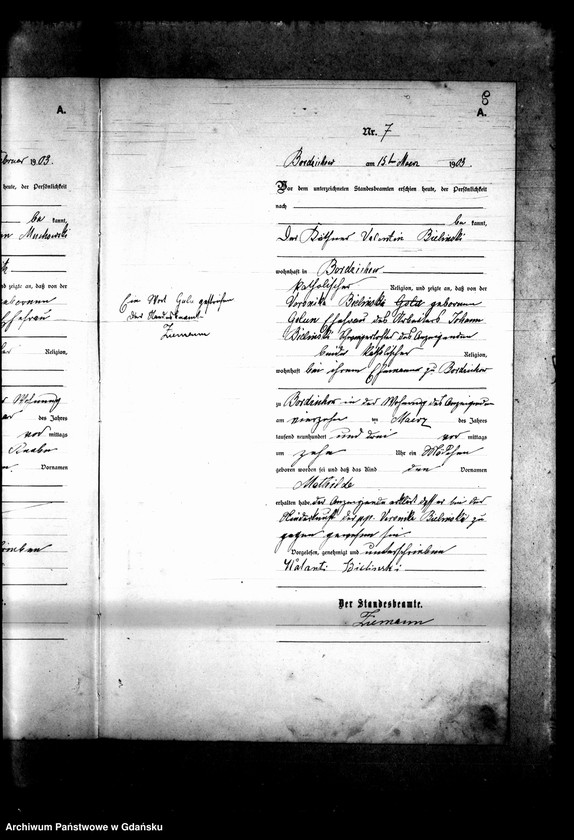 A.
ebruar 1903.
heute, der Persönlichkeit
be kannt,
und zeigte an, daß von der
geborenen
Ehefrau
Religion,
Wohnung
des Jahres
vor mittags
Knabe
Vornamen
Ein Wort Golu gestrichen
Der Standesbeamte
Ziemann
8
A.
Nr. 7
Bordzichow am 15ten Maerz 1903.
Vor dem unterzeichneten Standesbeamten erschien heute, der Persönlichkeit
nach
be kannt,
Der Käthner Valentin Bielinski
wohnhaft in Bordzichow
katholischer Religion, und zeigte an, daß von der
Veronika Bielinski Golu geborenen
Ehefrau des Arbeiters Johann
Bielinski Schwiegertochter des Anzeigenden
beide katholischer Religion,
wohnhaft bei ihrem Ehemanne zu Bordzichow
zu Bordzichow in der Wohnung des Anzeigenden
am vierzehn ten Maerz des Jahres
tausend neunhundert und drei vor mittags
um zehn Uhr ein Mädchen
geboren worden sei und daß das Kind den Vornamen
Mathilde
erhalten habe. der Anzeigende erklärt daß er bei der
Niederkunft der pp. Veronika Bielinski zu
gegen gewesen sei.
Vorgelesen, genehmigt und unterschrieben
Walanti Bielinski
Der Standesbeamte.
Ziemann
Archiwum Państwowe w Gdańsku